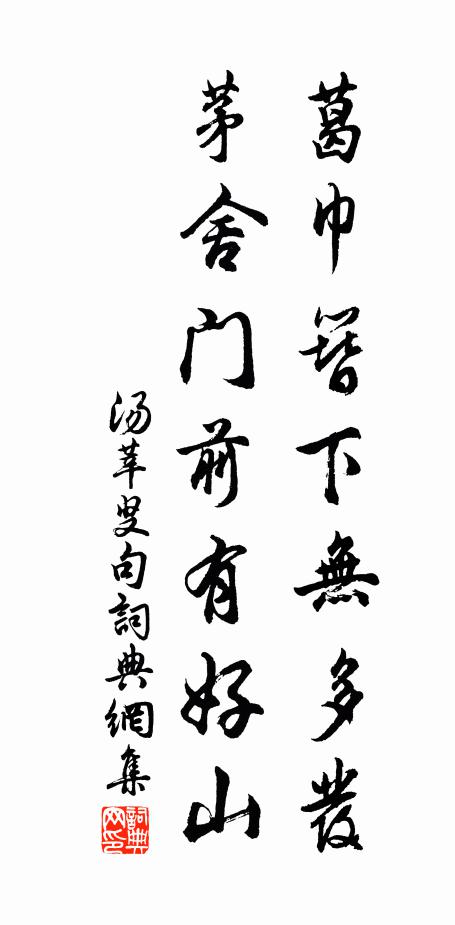 葛巾簪下無多發
茅舍門前有好山
汤莘叟句詞典網集
詞典网印